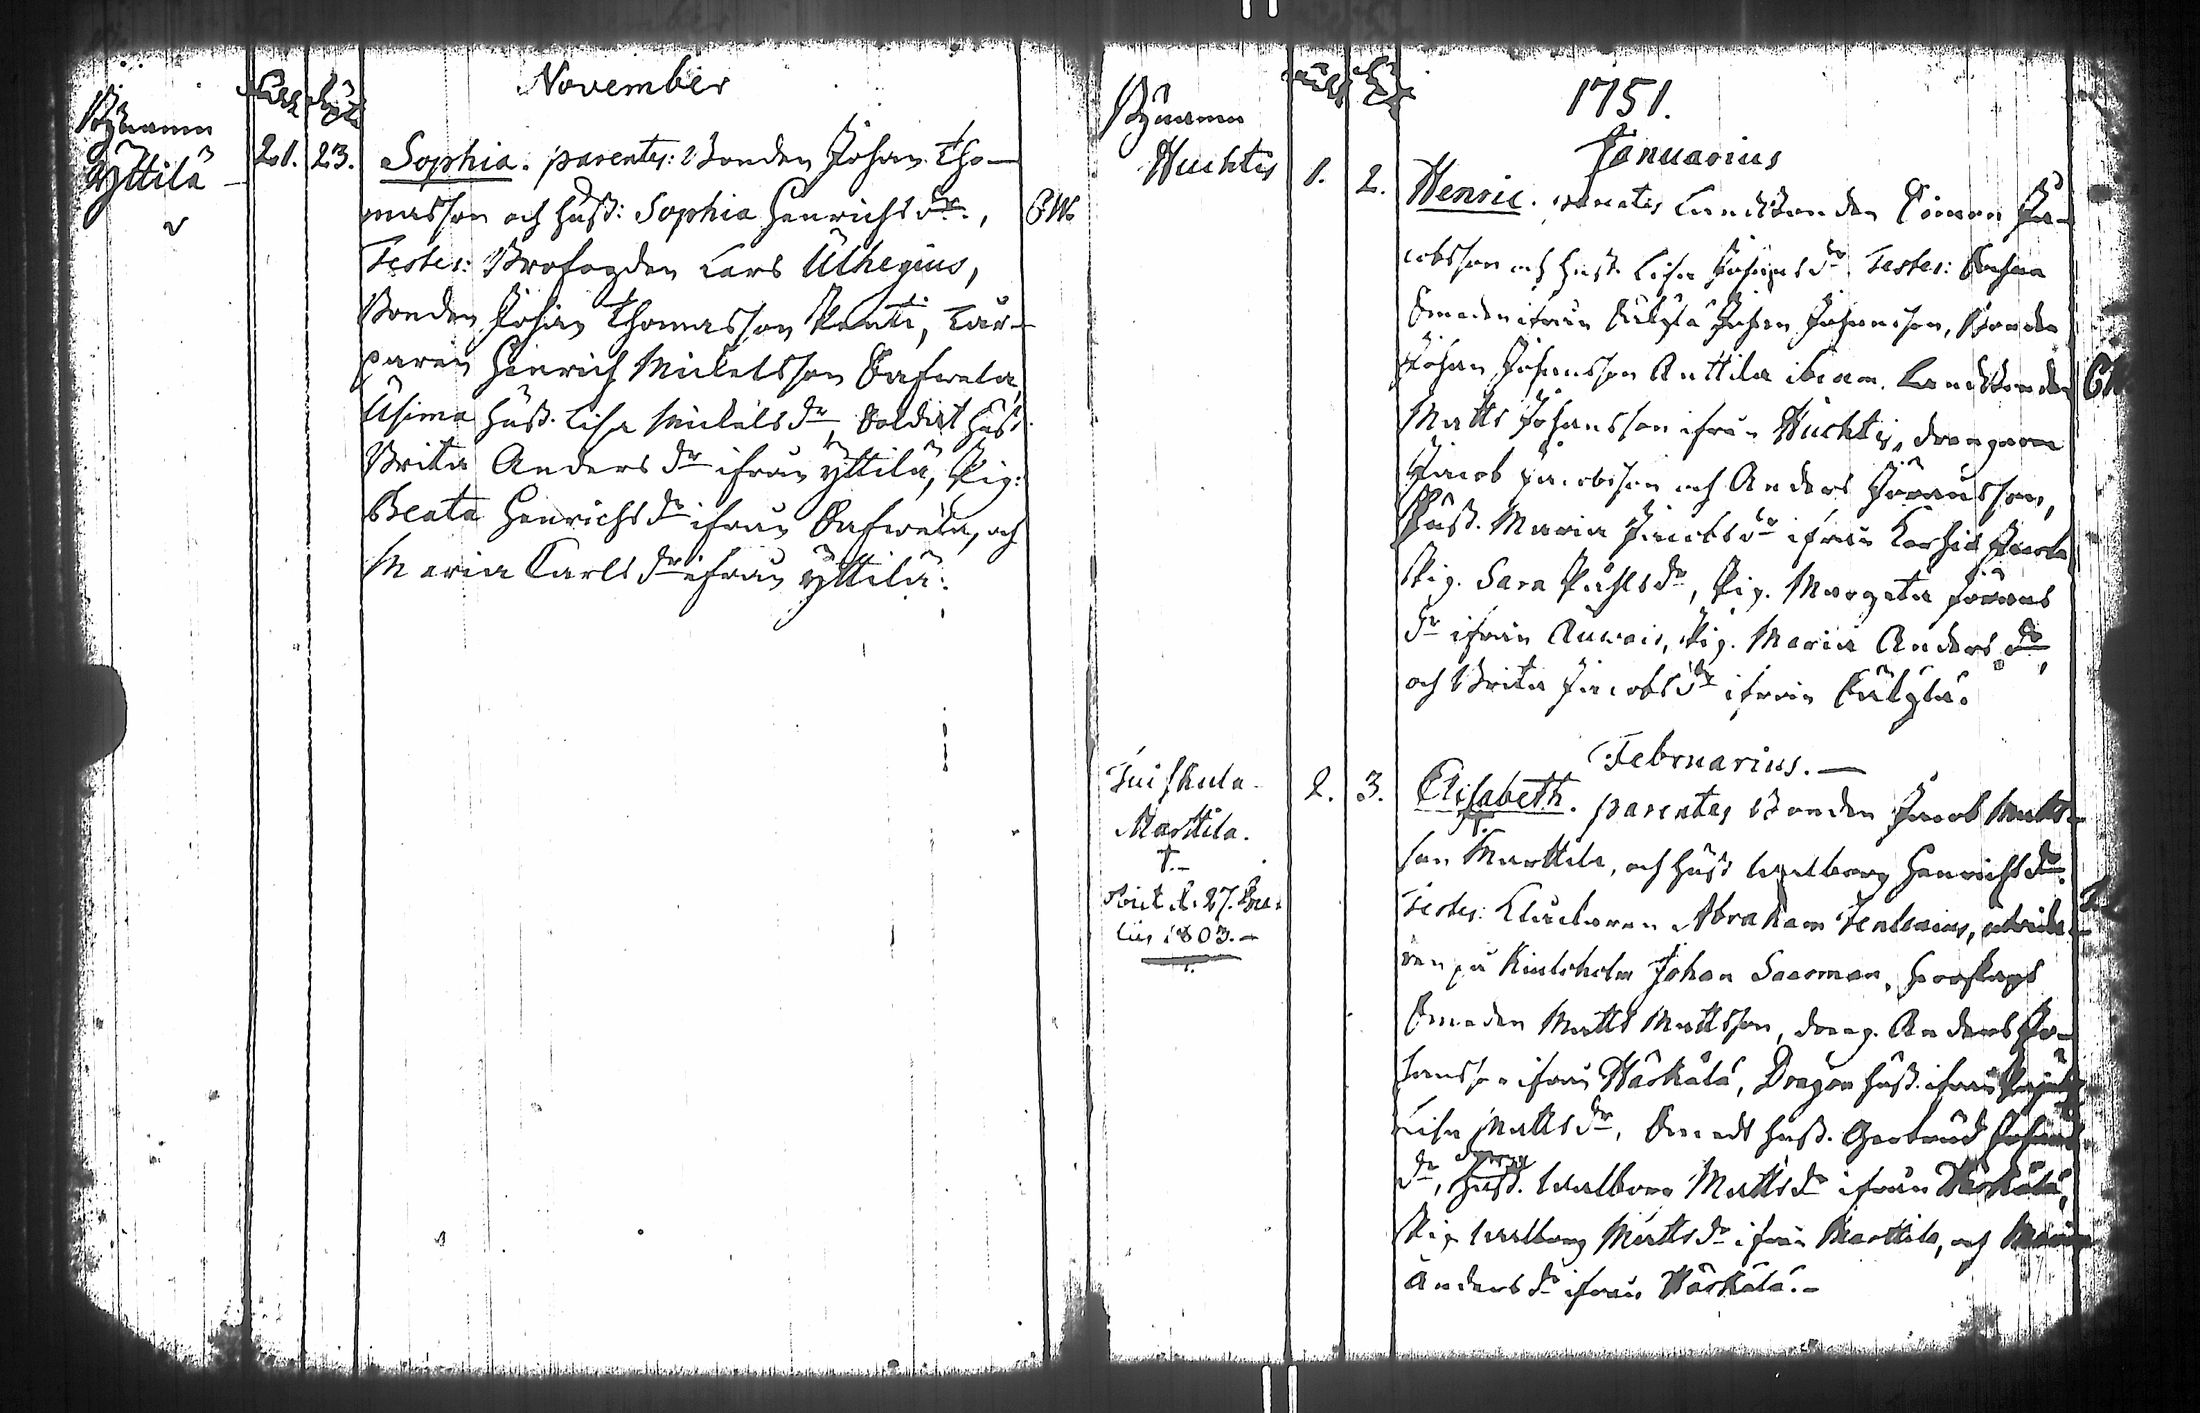 November
Byarnne
Född
döpt
Yttilä
21.
23.
Sophia. parentes: Bonden Johan Tho-
masson och hust: Sophia Henrichs dr.,
Testes: Brofogden Lars Ulhegius,
Bonden Johan Thomasson Pentti, Tar-
paren Henrich Mickelsson Safwela,
Usima hust. Lisa Mickels dr, Soldat hust
Brita Anders dr ifrån Yttilä, Pig:
Beata Henrichs dr ifrån Safwela, och
Maria Carls dr ifrån Yttilä.
1751.
Januarius
Byarnne
Huchtis
1.
2.
Henric. parentes Landbonden Simon Ja-
cobsson och hust. Lisa Johans dr. Testes:
Smeden ifrån Säkylä Johan Johansson, Bonden
Johan Johansson Anttila ibidem. Landbonden
Matts Johansson ifrån Huchtis, drengarne
Jacob Jacobsson och Anders Jöransson,
Hust. Maria Jacobs dr ifrån
Pig. Sara Påhls dr, Pig. Margeta Jörans
dr ifrån Auwais, Pig. Maria Anders dr,
och Brita Jacobs dr ifrån Säkylä.
Februarius.
Tuiskula
Marttila.
†.
d. 27.
1803.
2.
3.
Elisabeth. parentes Bonden Jacob Matts-
son Marttila, och hust Walborg Henrichs dr.
Testes: Kluckaren Abraham
på Johan Saarman,
Smeden Matts Mattsson, dreng. Anders Jo-
hansson ifrån Häskälä, Dragon hust. ifrån
Lisa Matts dr, Smeds hust. Gertrud Johans
dr, hust. Walborg Matts dr ifrån Häskälä,
Pig Walborg Matts dr ifrån Marttila, och Maria
Anders dr ifrån Häskälä.